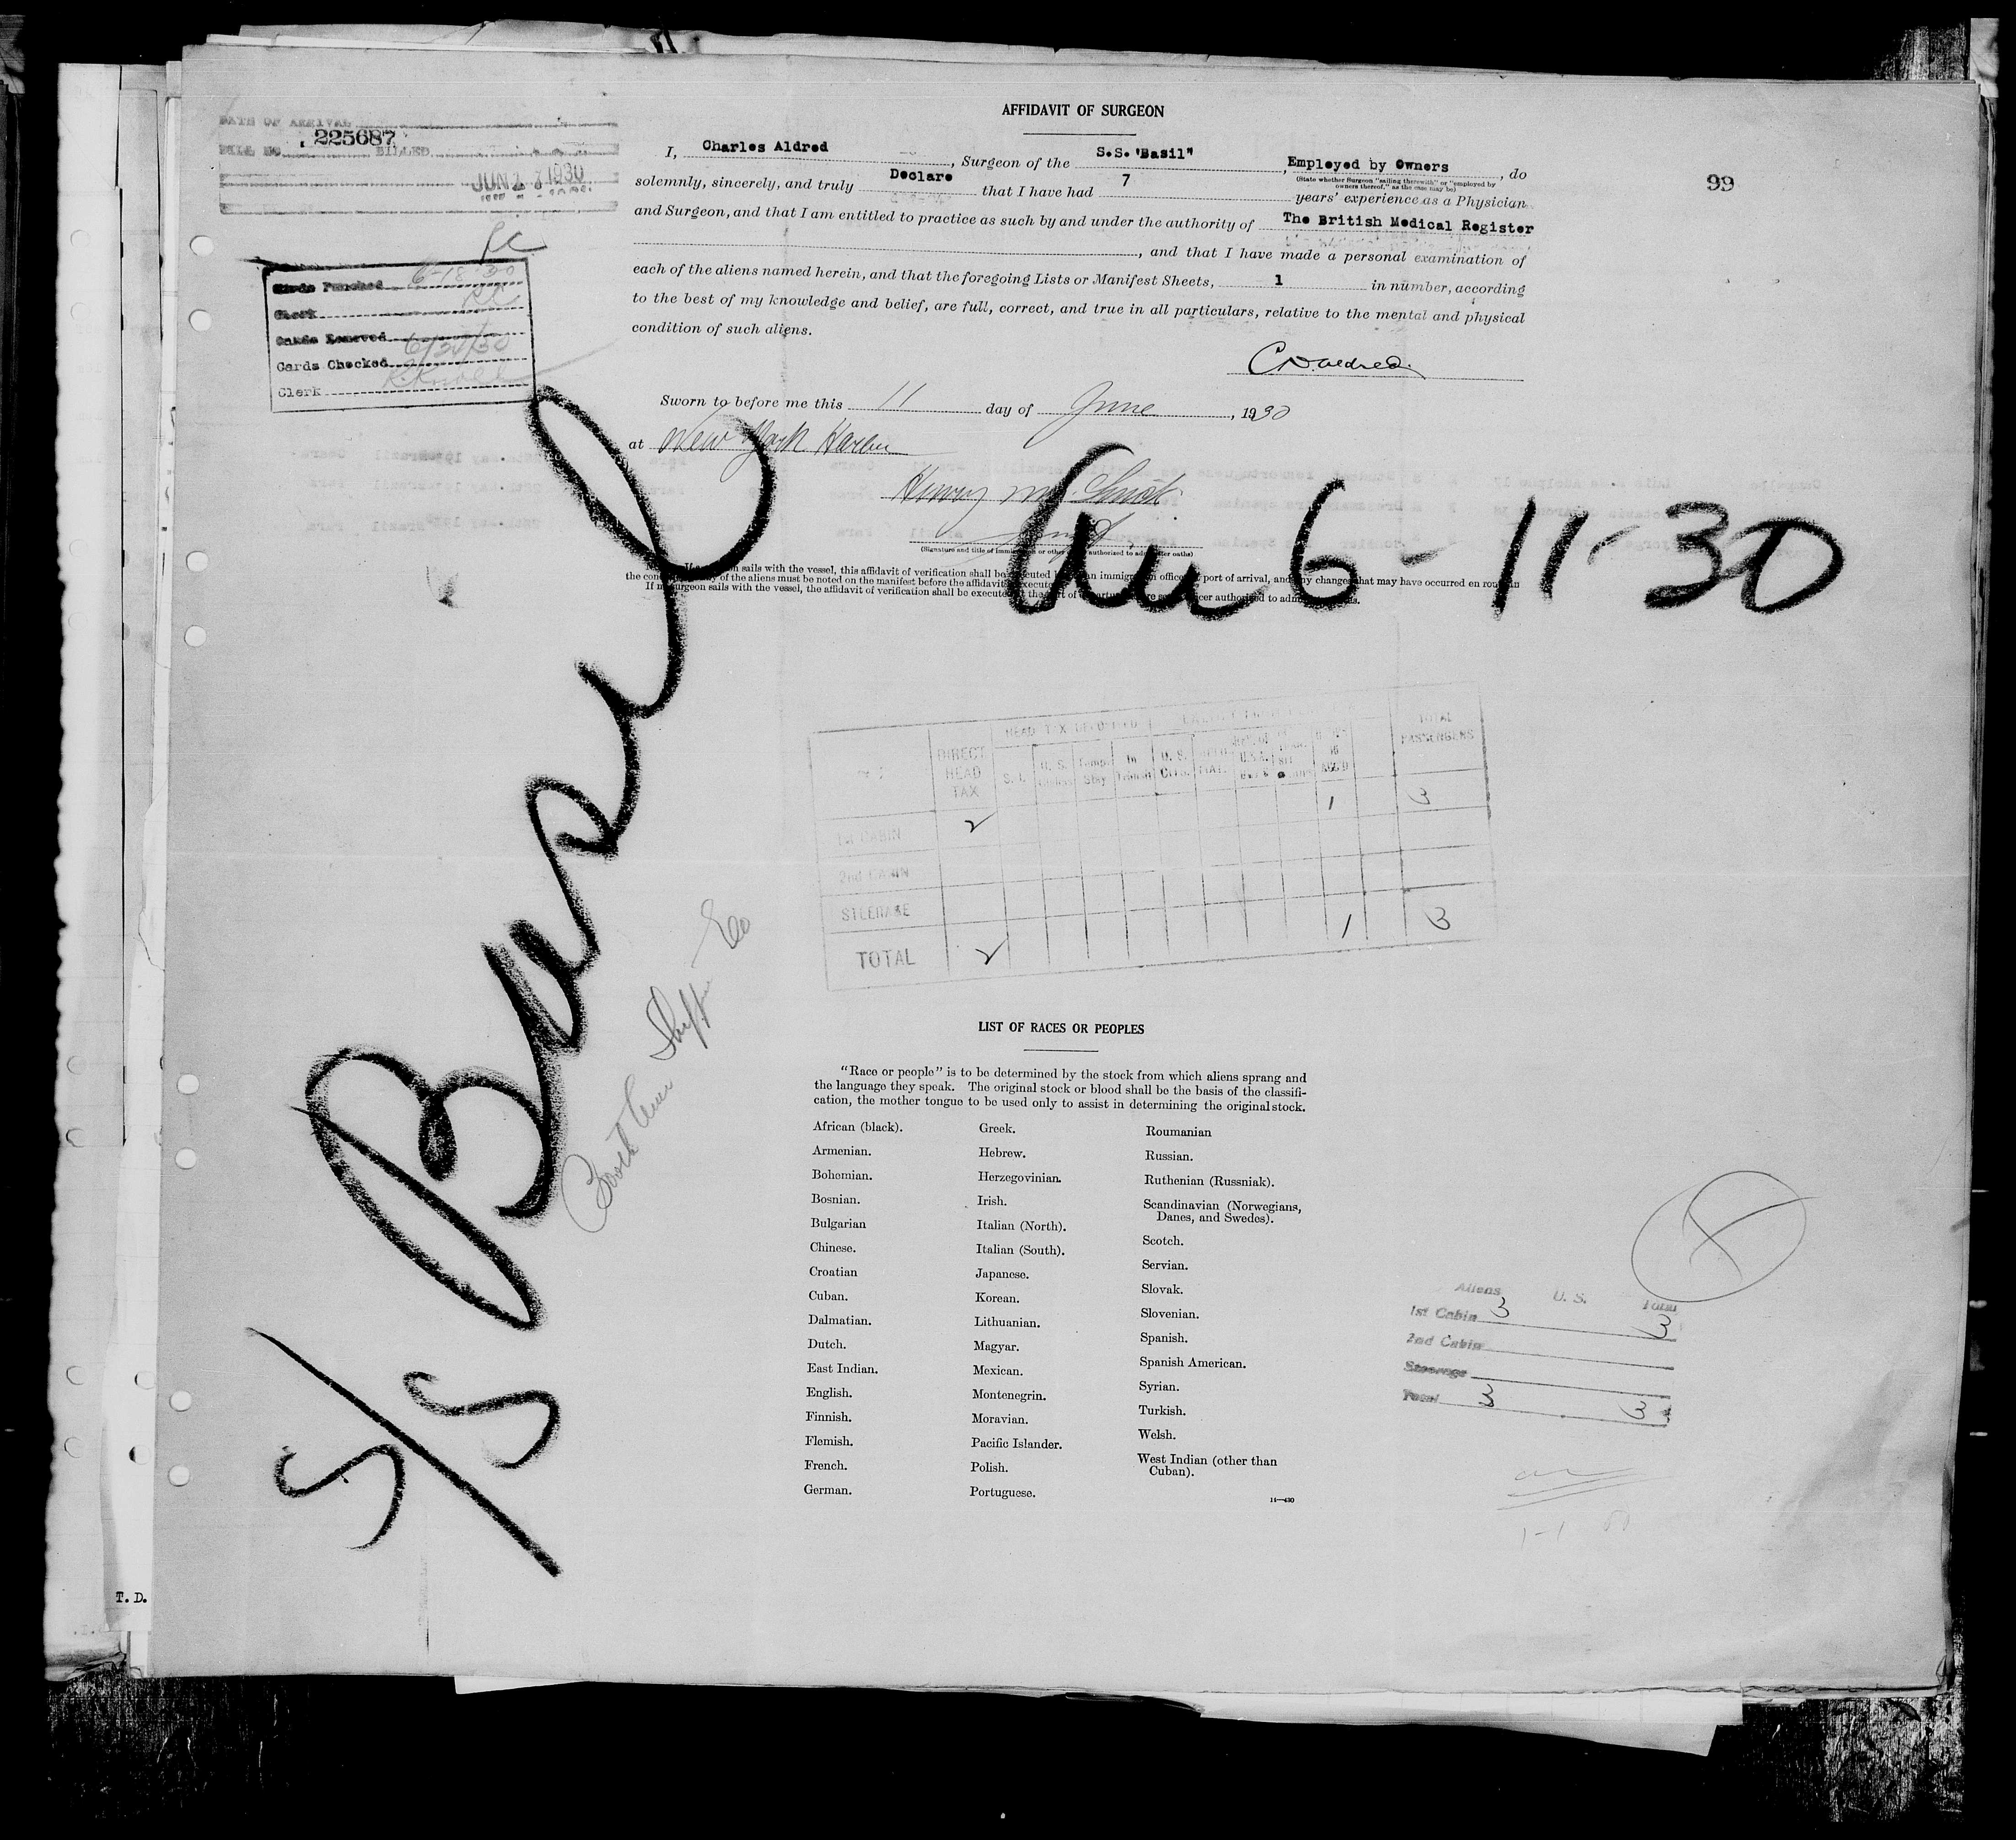 DATE OF ARRIVAL
225687
BILL No. BILLED
JUN 1930
AFFIDAVIT OF SURGEON
99
I, Charles Aldred, Surgeon of the S.S. "Basil", Employed by Owners, do
(State whether Surgeon "sailing therewith" or "employed by
owners thereof," as the case may be)
solemnly, sincerely, and truly Declare that I have had 7 years' experience as a Physician
and Surgeon, and that I am entitled to practice as such by and under the authority of The British Medical Register
, and that I have made a personal examination of
each of the aliens named herein, and that the foregoing Lists or Manifest Sheets, 1 in number, according
to the best of my knowledge and belief, are full, correct, and true in all particulars, relative to the mental and physical
condition of such aliens.
Cards Punched 6-18-30
Clerk
Cards Removed 6/30/30
Cards Checked
Clerk
Sworn to before me this 11 day of June, 1930
at New York Harbor
(Signature and title of immigration or other authorized to administer oaths)
sails with the vessel, this affidavit of verification shall be executed an immigration officer port of arrival, and any changes that may have occurred en route in
the condition of the aliens must be noted on the manifest before the affidavit
If no surgeon sails with the vessel, the affidavit of verification shall be executed the port of departure officer authorized to
6-11-30
S/S Basil
HEAD TAX
DIRECT HEAD TAX
U. S.
Temp. Stay
In Transit
U. S. Citz.
TOTAL PASSENGERS
1st CABIN 2 1 3
2nd CABIN
STEERAGE
TOTAL 2 1 3
LIST OF RACES OR PEOPLES
"Race or people" is to be determined by the stock from which aliens sprang and
the language they speak. The original stock or blood shall be the basis of the classifi-
cation, the mother tongue to be used only to assist in determining the original stock.
African (black).
Armenian.
Bohemian.
Bosnian.
Bulgarian
Chinese.
Croatian
Cuban.
Dalmatian.
Dutch.
East Indian.
English.
Finnish.
Flemish.
French.
German.
Greek.
Hebrew.
Herzegovinian.
Irish.
Italian (North).
Italian (South).
Japanese.
Korean.
Lithuanian.
Magyar.
Mexican.
Montenegrin.
Moravian.
Pacific Islander.
Polish.
Portuguese.
Roumanian
Russian.
Ruthenian (Russniak).
Scandinavian (Norwegians,
Danes, and Swedes).
Scotch.
Servian.
Slovak.
Slovenian.
Spanish.
Spanish American.
Syrian.
Turkish.
Welsh.
West Indian (other than
Cuban).
Aliens U. S. Total
1st Cabin 3 3
2nd Cabin
Steerage
Total 3 3
T.D.